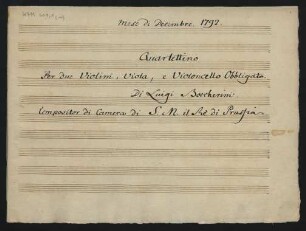 Mese di Decembre. 1792.
Quartettino
Per due Violini, Viola, e Violoncello Obbligato
Di Luigi Boccherini
Compositor di Camera di S. M. il Ré di Prussia